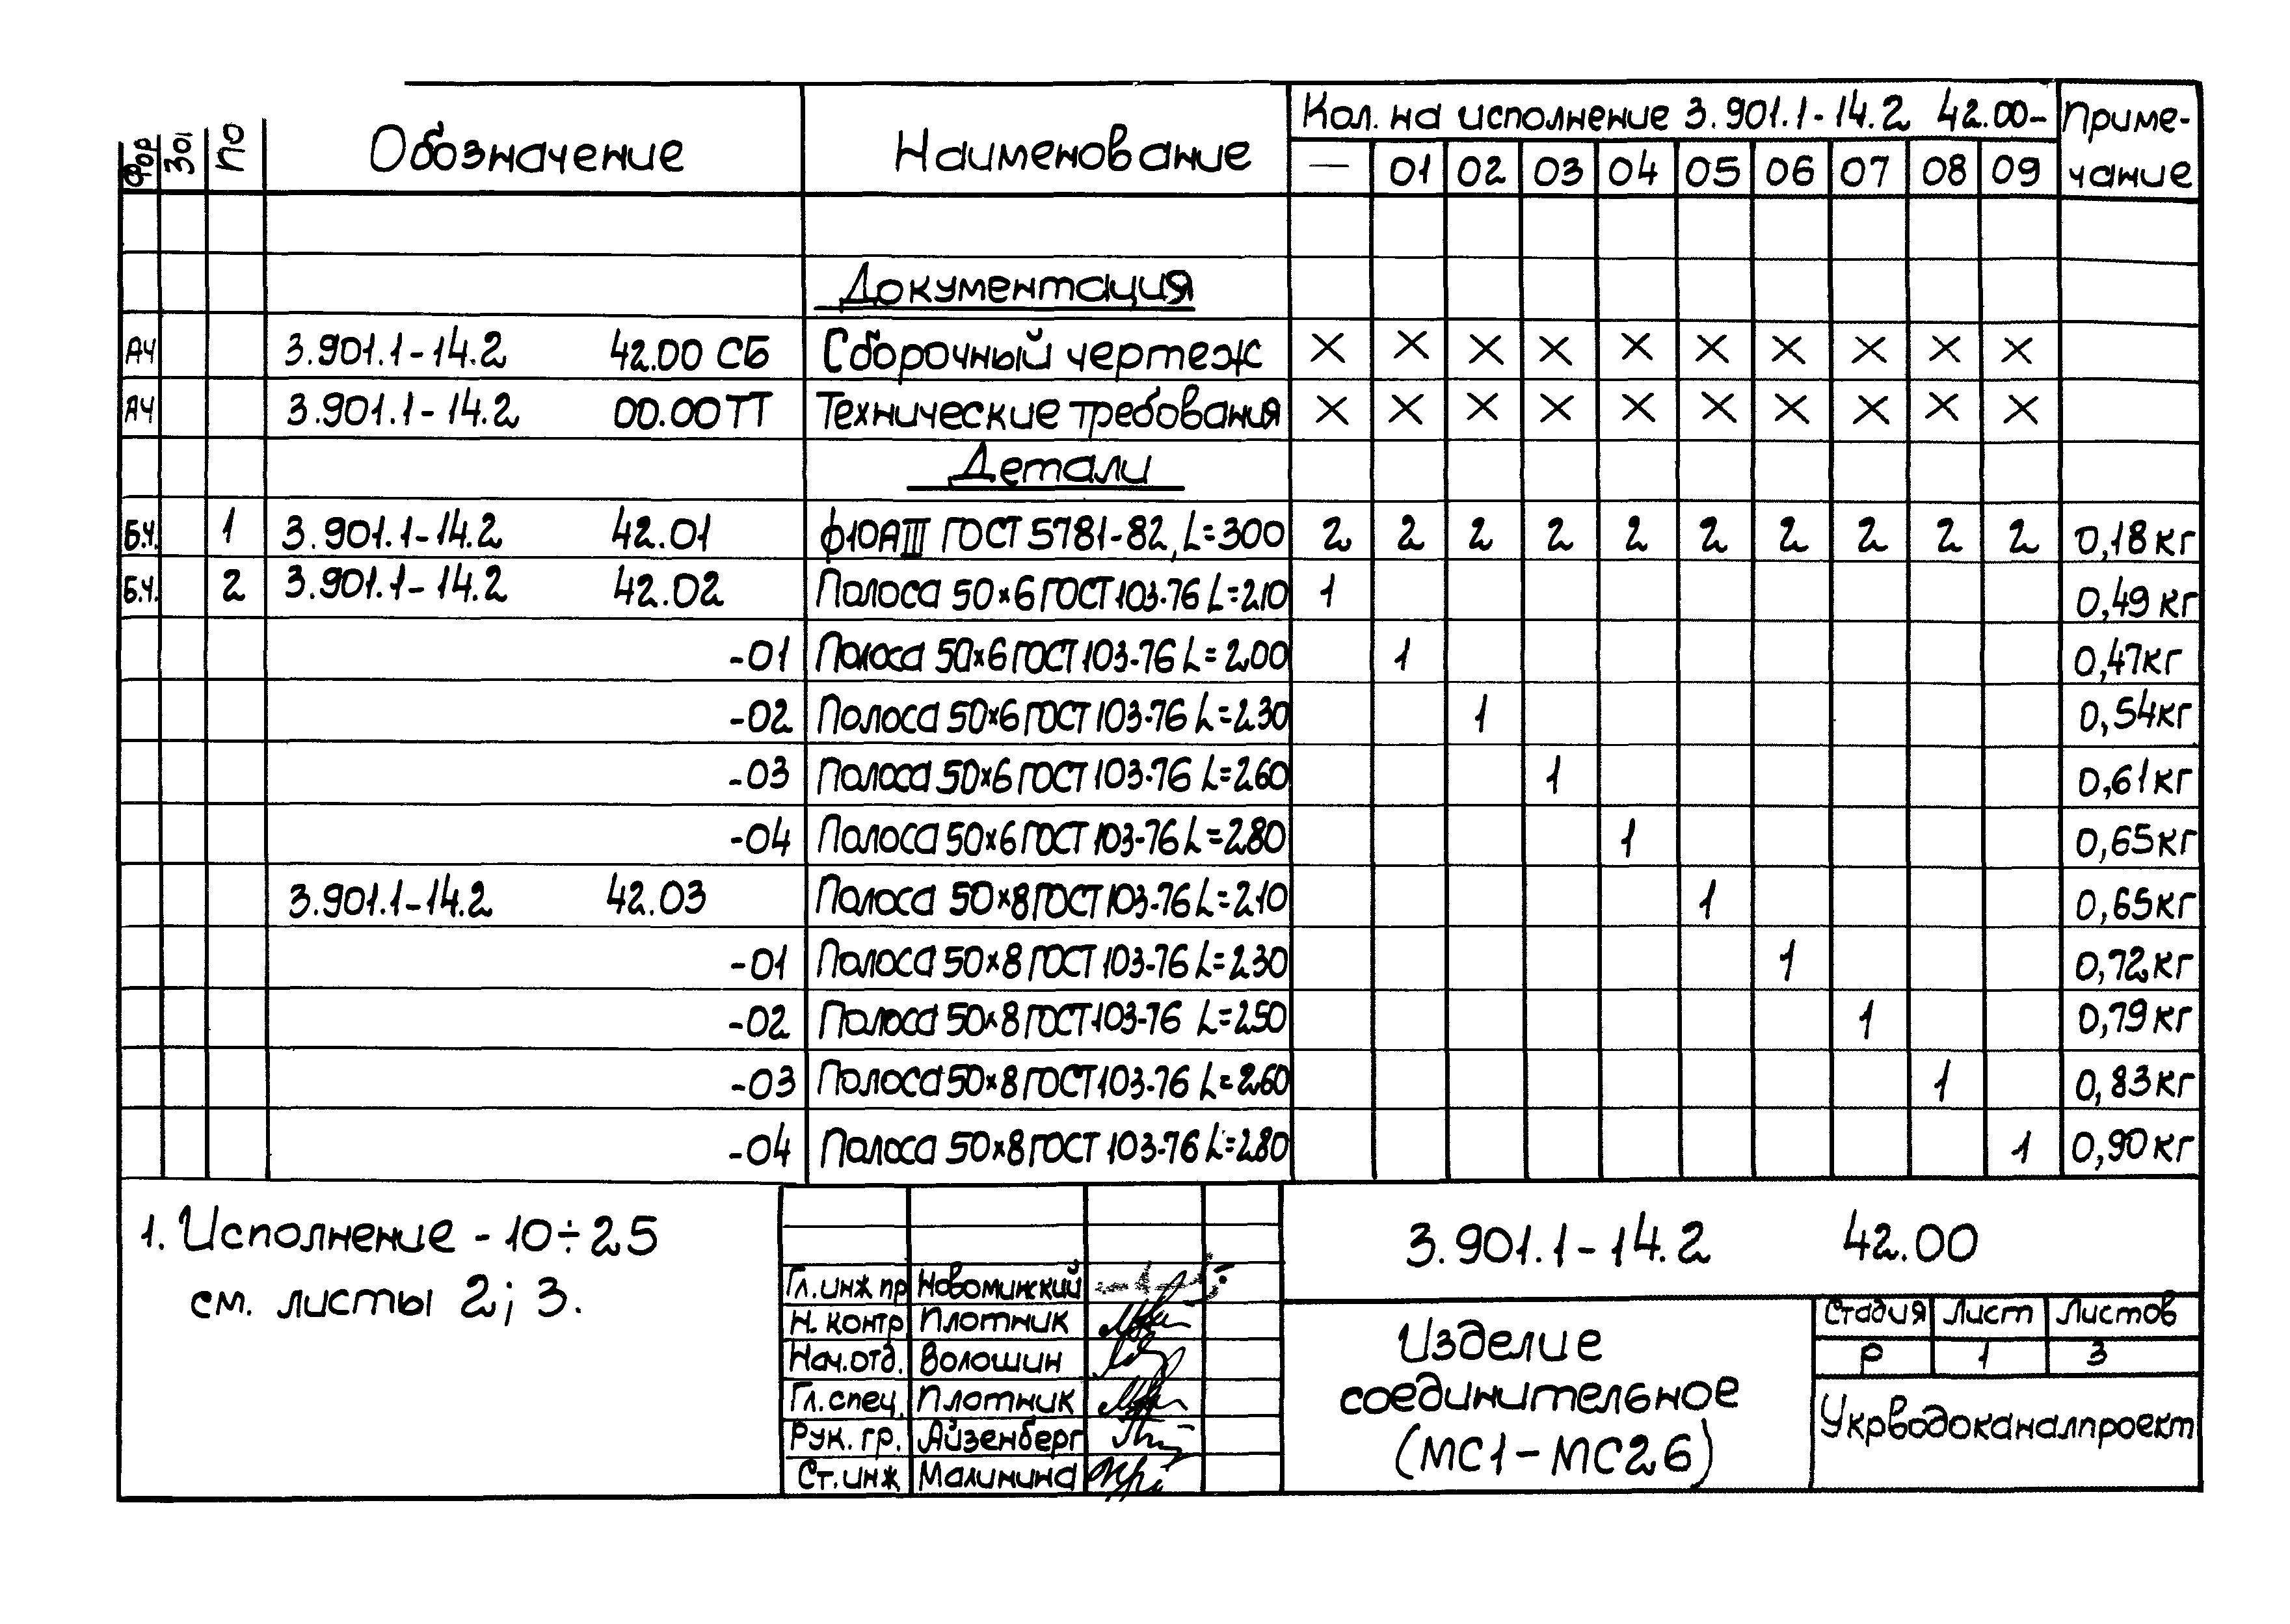 Фор Зо По Обозначение Наименование Кол. на исполнение 3.901.1-14.2 42.00- Приме-
— 01 02 03 04 05 06 07 08 09 чание
Документация
А4 3.901.1-14.2 42.00 СБ Сборочный чертеж × × × × × × × × × ×
А4 3.901.1-14.2 00.00ТТ Технические требования × × × × × × × × × ×
Детали
Б.Ч. 1 3.901.1-14.2 42.01 ф10АIII ГОСТ 5781-82, L=300 2 2 2 2 2 2 2 2 2 2 0,18кг
Б.Ч. 2 3.901.1-14.2 42.02 Полоса 50×6 ГОСТ 103-76 L=210 1 0,49кг
-01 Полоса 50×6 ГОСТ 103-76 L=200 1 0,47кг
-02 Полоса 50×6 ГОСТ 103-76 L=230 1 0,54кг
-03 Полоса 50×6 ГОСТ 103-76 L=260 1 0,61кг
-04 Полоса 50×6 ГОСТ 103-76 L=280 1 0,65кг
3.901.1-14.2 42.03 Полоса 50×8 ГОСТ 103-76 L=210 1 0,65кг
-01 Полоса 50×8 ГОСТ 103-76 L=230 1 0,72кг
-02 Полоса 50×8 ГОСТ 103-76 L=250 1 0,79кг
-03 Полоса 50×8 ГОСТ 103-76 L=260 1 0,83кг
-04 Полоса 50×8 ГОСТ 103-76 L=280 1 0,90кг
1. Исполнение -10÷25
см. листы 2; 3.
Гл.инж пр Новоминский
Н. контр Плотник
Нач.отд. Волошин
Гл.спец. Плотник
Рук. гр. Айзенберг
Ст.инж Малинина
3.901.1-14.2 42.00
Изделие
соединительное
(МС1-МС26)
Стадия Лист Листов
Р 1 3
Укрводоканалпроект